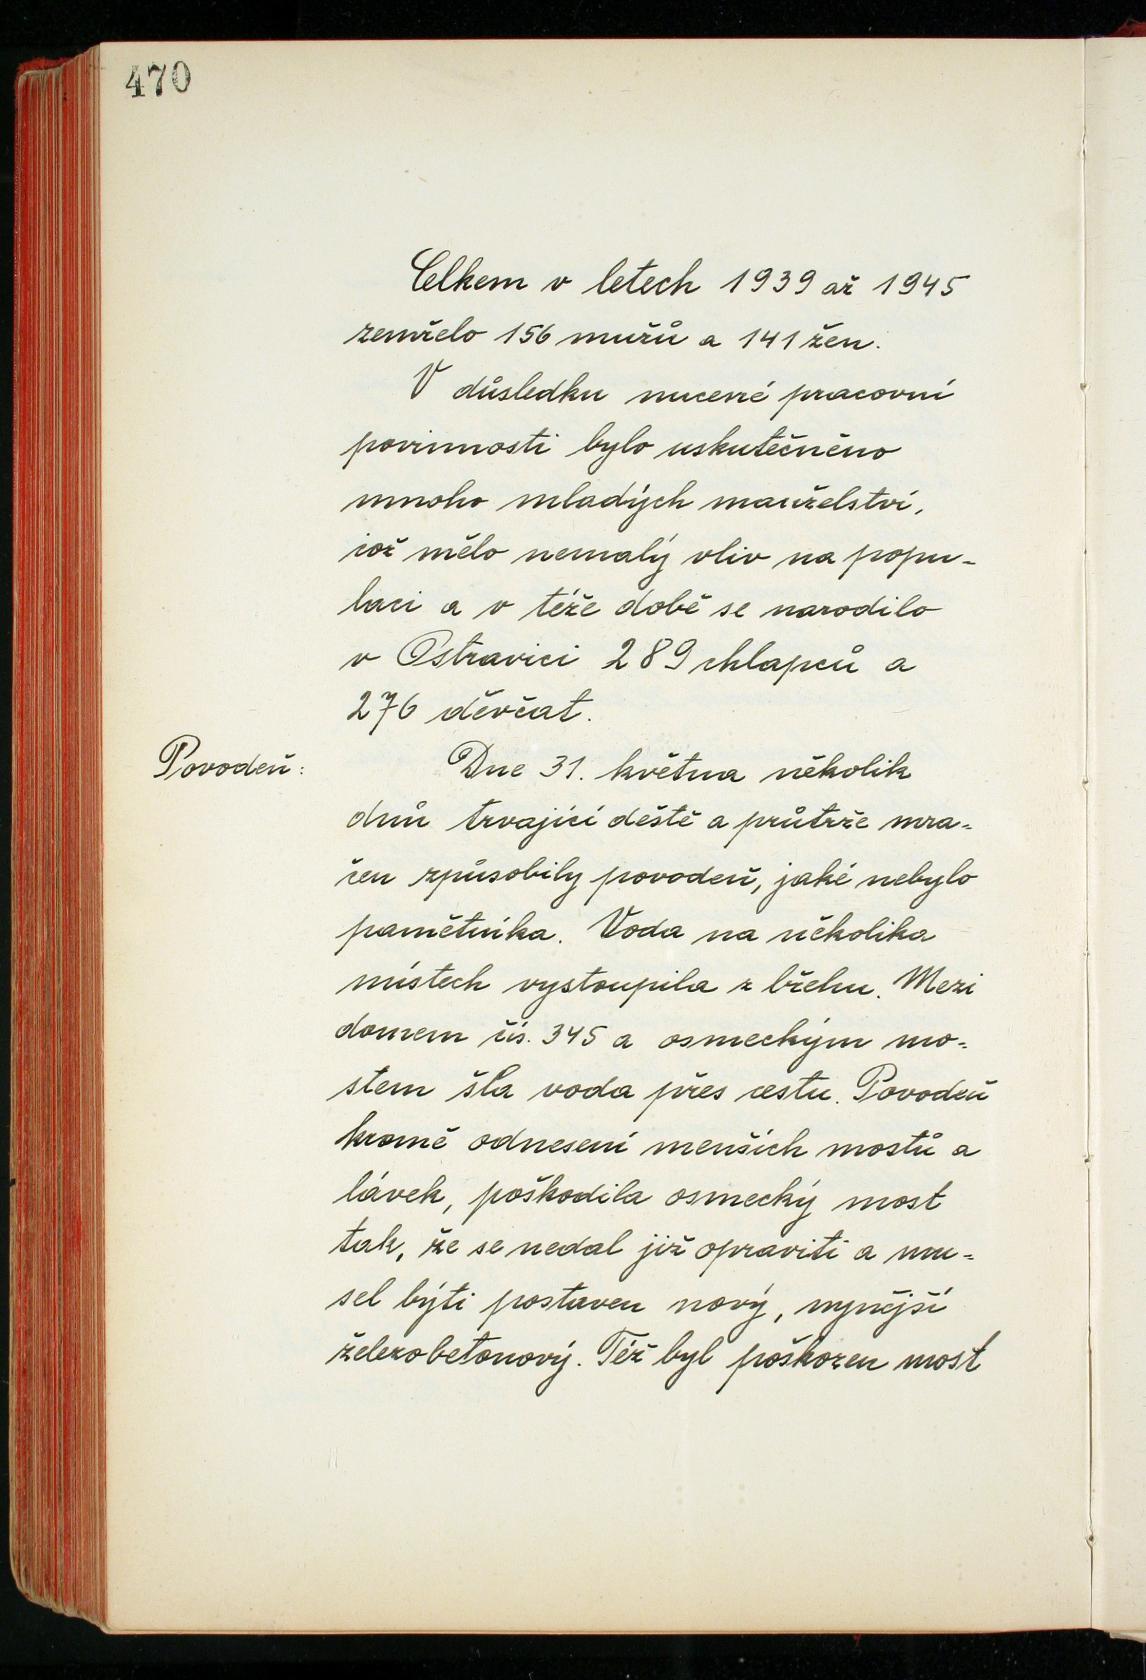 470
Celkem v letech 1939 až 1945
zemřelo 156 mužů a 141 žen.
V důsledku nucené pracovní
povinnosti bylo uskutečněno
mnoho mladých manželství,
což mělo nemalý vliv na popu-
laci a v téže době se narodilo
v Ostravici 289 chlapců a
276 děvčat.
Povodeň:
Dne 31. května několik
dnů trvající deště a průtrže mra-
čen způsobily povodeň, jaké nebylo
pamětníka. Voda na několika
místech vystoupila z břehu. Mezi
domem čís. 345 a osmeckým mo-
stem šla voda přes cestu. Povodeň
kromě odnesení menších mostů a
lávek, poškodila osmecký most
tak, že se nedal již opraviti a mu-
sel býti postaven nový, nynější
železobetonový. Též byl poškozen most